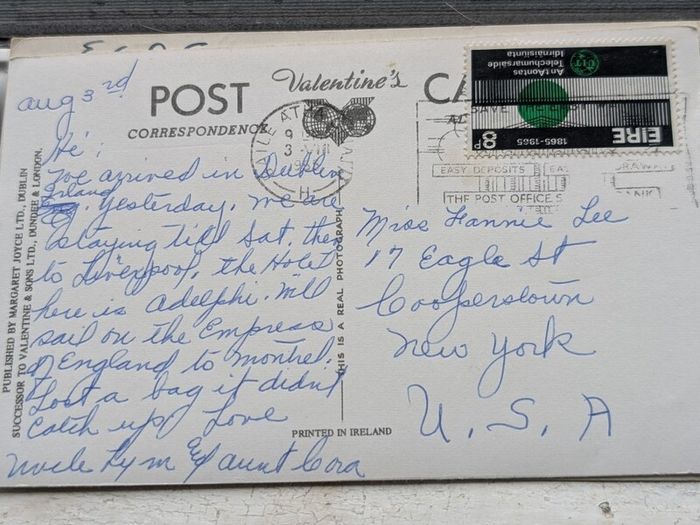 aug 3rd
POST
CORRESPONDENCE
Valentine's
CA
Hi,
We arrived in Dublin
Irland
yesterday, we are
staying till Sat. then
to Liverpool, the Hotel
here is Adelphi. Will
sail on the Empress
of England to Montreal.
Lost a bag it didn't
catch up. Love
Uncle Lym & aunt Cora
PUBLISHED BY MARGARET JOYCE LTD., DUBLIN
SUCCESSOR TO VALENTINE & SONS LTD., DUNDEE & LONDON.
THIS IS A REAL PHOTOGRAPH
PRINTED IN IRELAND
ÉIRE
1865-1965
8p
An tAontas
Teilechumarsáide
Idirnáisiúnta
UIT
BAILE ÁTHA
9
3 VIII
1965
H
SAVE
EASY DEPOSITS
EAS
DRAWA
THE POST OFFICE S
BANK
Miss Fannie Lee
17 Eagle St
Cooperstown
New York
U. S. A